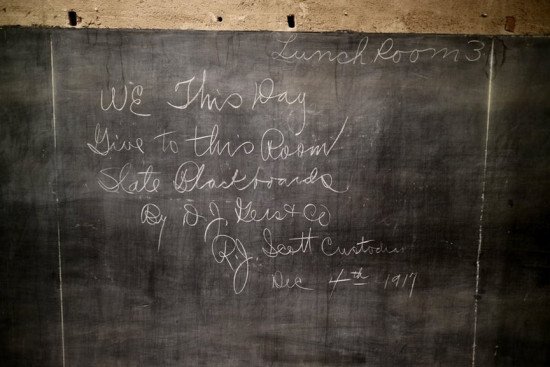 Lunch Room 3
WE This Day
Give to this Room
Slate Blackboards
By D. J. Gers & Co
R. J. Scott Custodian
Dec 4th 1917